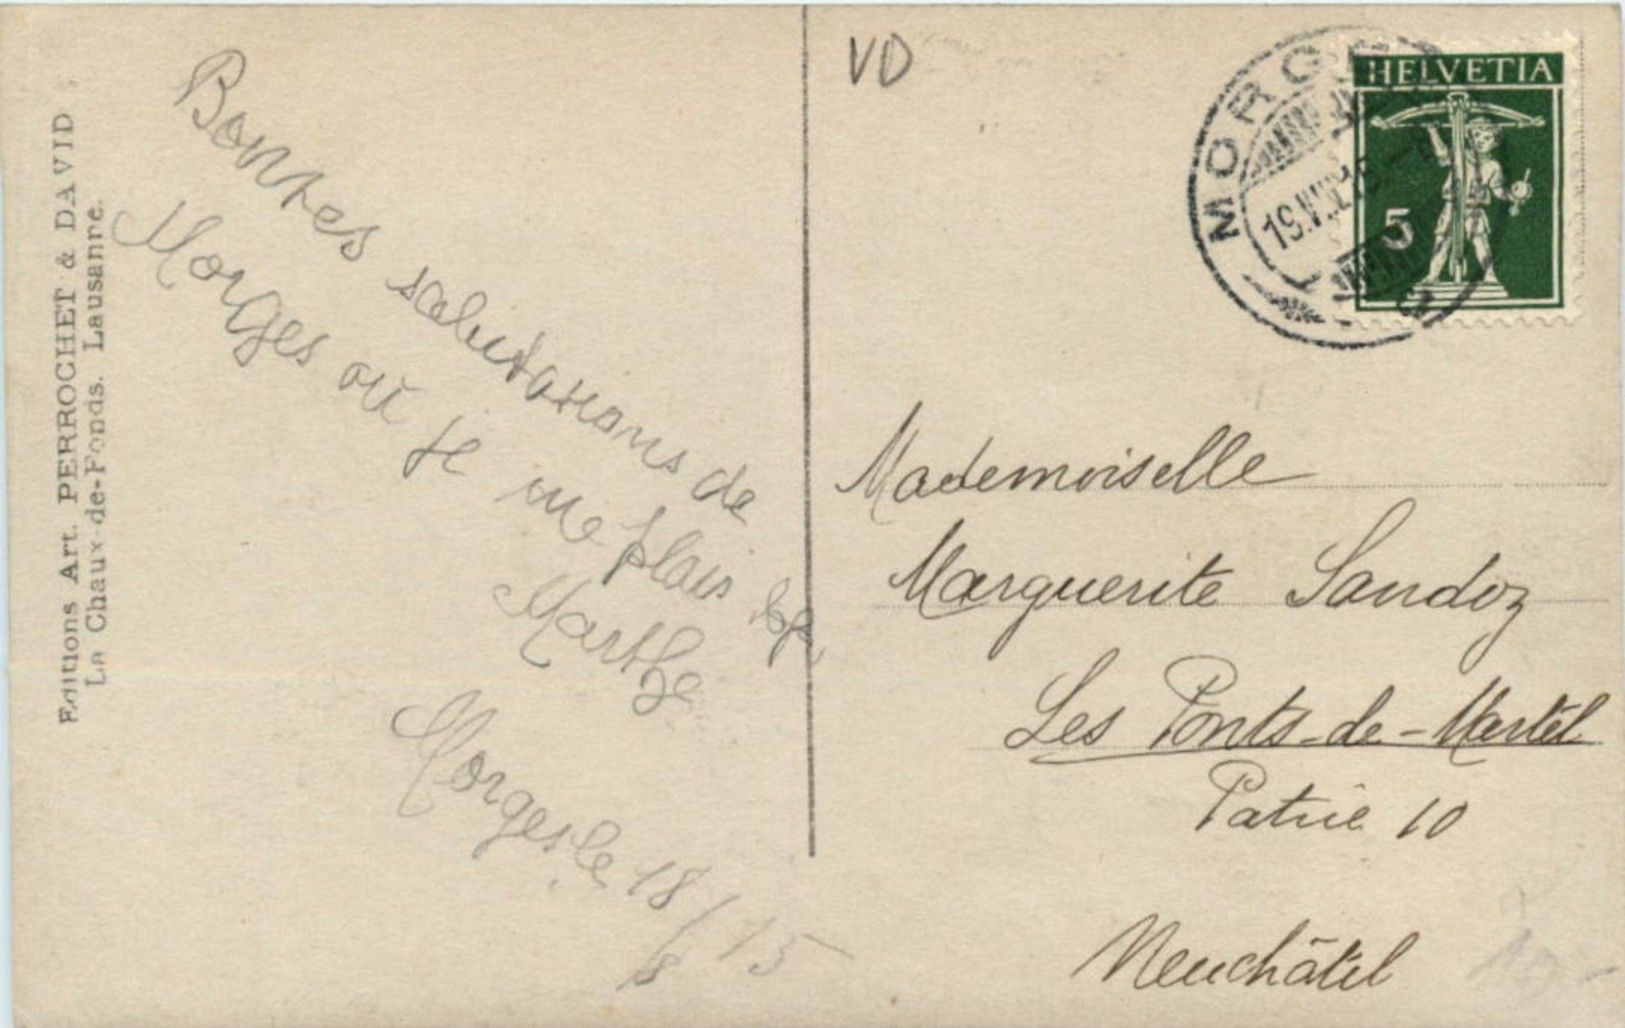 Editions Art. PERROCHET & DAVID
La Chaux-de-Fonds. Lausanne.
Bontes salutations de
Morges où je me plais
Marthe
Morges le 18/8 15
VD
MORG
19.VIII.
HELVETIA
5
Mademoiselle
Marguerite Sandoz
Les Ponts-de-Martel
Patrie 10
Neuchâtel